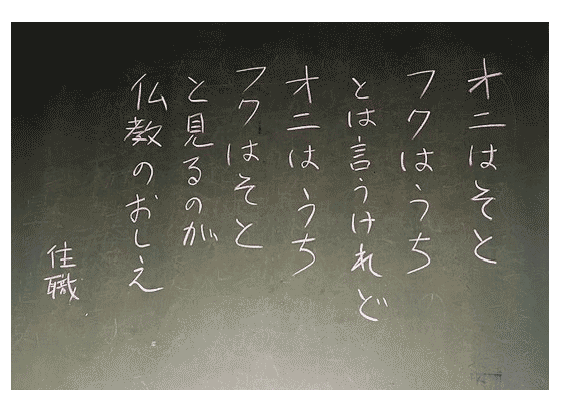 オニはそと
フクはうち
とは言うけれど
オニはうち
フクはそと
と見るのが
仏教のおしえ
住職